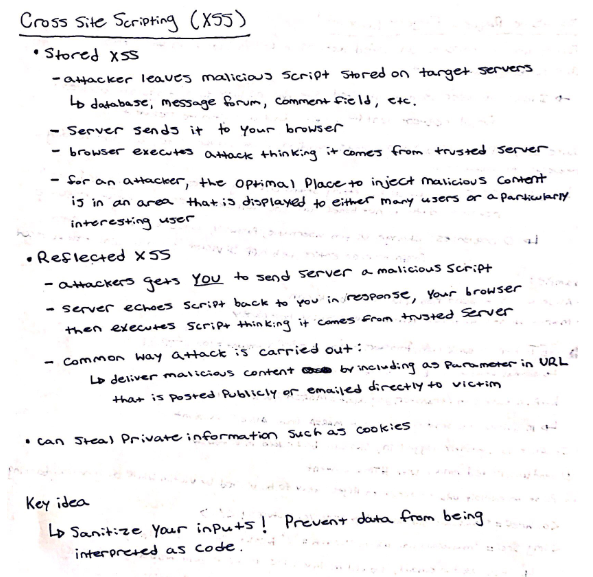 Cross Site Scripting (XSS)
• Stored XSS
- attacker leaves malicious script stored on target servers
↳ database, message forum, comment field, etc.
- Server sends it to your browser
- browser executes attack thinking it comes from trusted server
- for an attacker, the optimal place to inject malicious content
is in an area that is displayed to either many users or a particularly
interesting user
• Reflected XSS
- attackers gets YOU to send server a malicious script
- server echoes script back to you in response, your browser
then executes script thinking it comes from trusted server
- common way attack is carried out:
↳ deliver malicious content by including as parameter in URL
that is posted publicly or emailed directly to victim
• can steal private information such as cookies
Key idea
↳ Sanitize your inputs! Prevent data from being
interpreted as code.